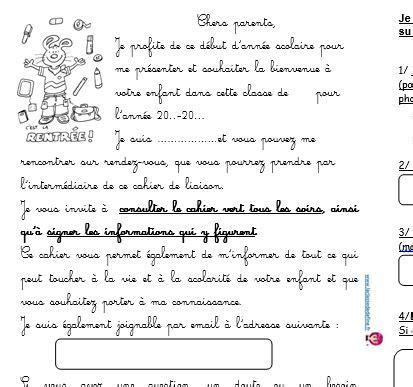 Chers parents,
Je profite de ce début d'année scolaire pour
me présenter et souhaiter la bienvenue à
votre enfant dans cette classe de pour
l'année 20..-20...
C'EST LA
RENTRÉE !
Je suis ..................et vous pouvez me
rencontrer sur rendez-vous, que vous pourrez prendre par
l'intermédiaire de ce cahier de liaison.
Je vous invite à consulter le cahier vert tous les soirs, ainsi
qu'à signer les informations qui y figurent.
Ce cahier vous permet également de m'informer de tout ce qui
peut toucher à la vie et à la scolarité de votre enfant et que
vous souhaitez porter à ma connaissance.
Je suis également joignable par email à l'adresse suivante :
Je
su
1/
(po
pho
2/
3/
(me
4/
Si